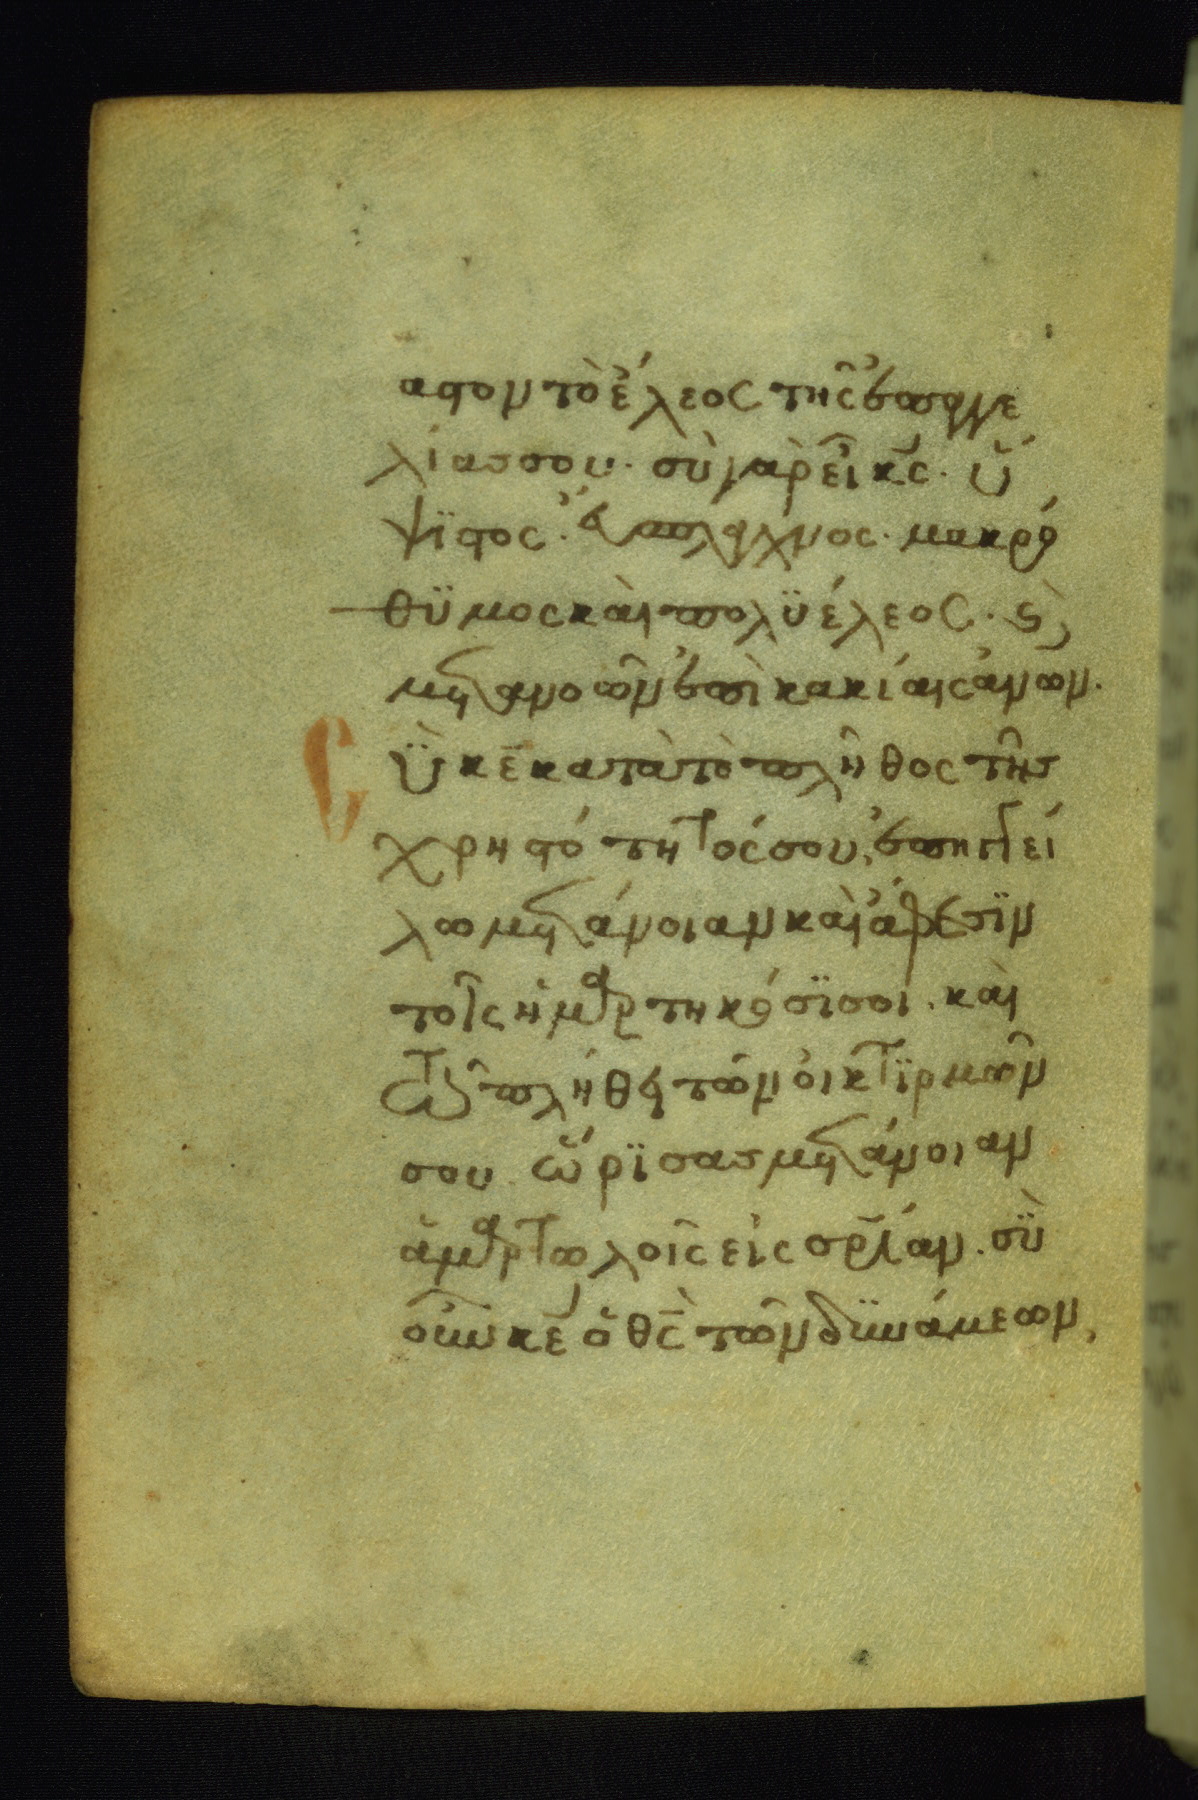 αστον τὸ ἔλεος τῆς ἐπαγγε
λίας σου· σὺ γὰρ εἶ κς̄· ὕ
ψϊστος· εὔσπλαγχνος· μακρό
θϋμος καὶ πολϋέλεος· καὶ
μετανοῶν ἐπὶ κακίαις ἀνων̄·
Σῢ κε̄ κατὰ τὸ πλῆθος τῆς
χρηστότητός σου, ἐπηγγεί
λω μετάνοιαν καὶ ἄφεσϊν
τοῖς ἡμαρτηκόσϊ σοι· καὶ
τῶ πλήθει τῶν οἰκτϊρμῶν
σου ὥρϊσας μετάνοιαν
ἁμαρτωλοῖς εἰς σρ̄ίαν· σῢ
οὖν κε̄ ὁ θς̄ τῶν δϋνάμεων,